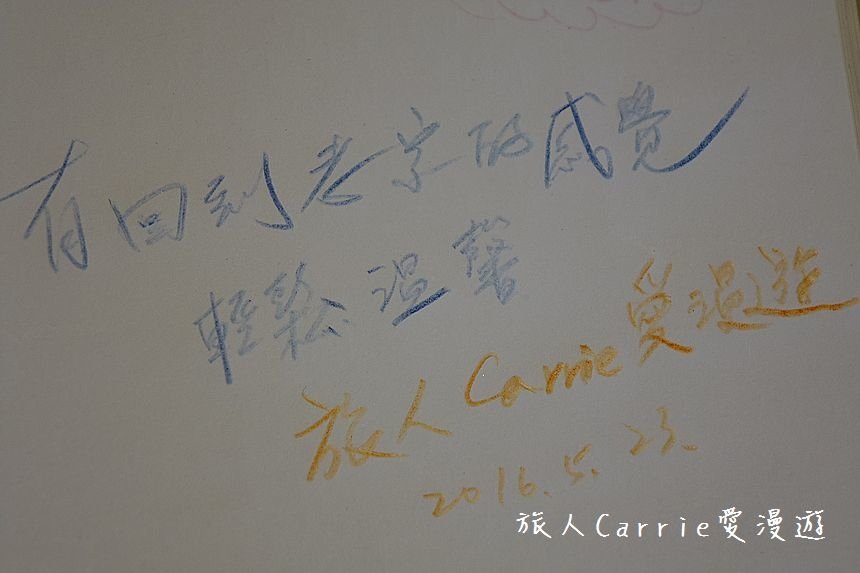 有回到老家的感覺
輕鬆溫馨
旅人Carrie愛漫遊
2016.5.23.
旅人Carrie愛漫遊